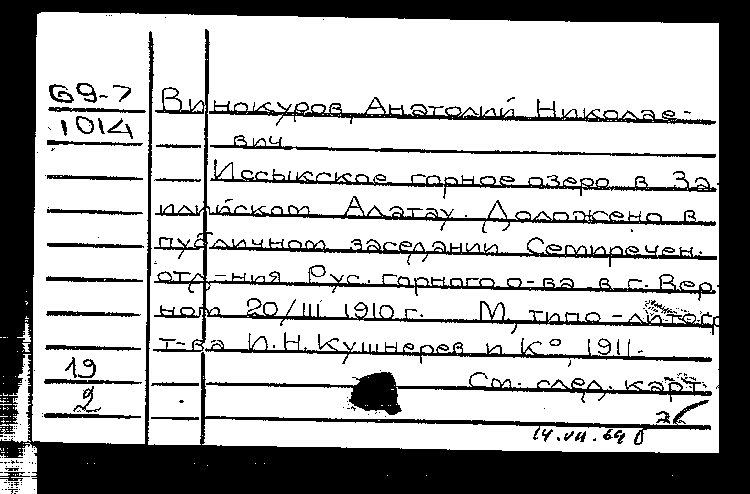 69-7
1014
Винокуров, Анатолий Николае-
вич
Иссыкское горное озеро в За-
илийском Алатау. Доложено в
публичном заседании Семиречен.
отд-ния Рус. горного о-ва в г. Вер-
ном 20/III 1910 г. М, типо-литогр
т-ва И.Н. Кушнерев и К°, 1911.
19
См. след. карт.
2
14.VII.69